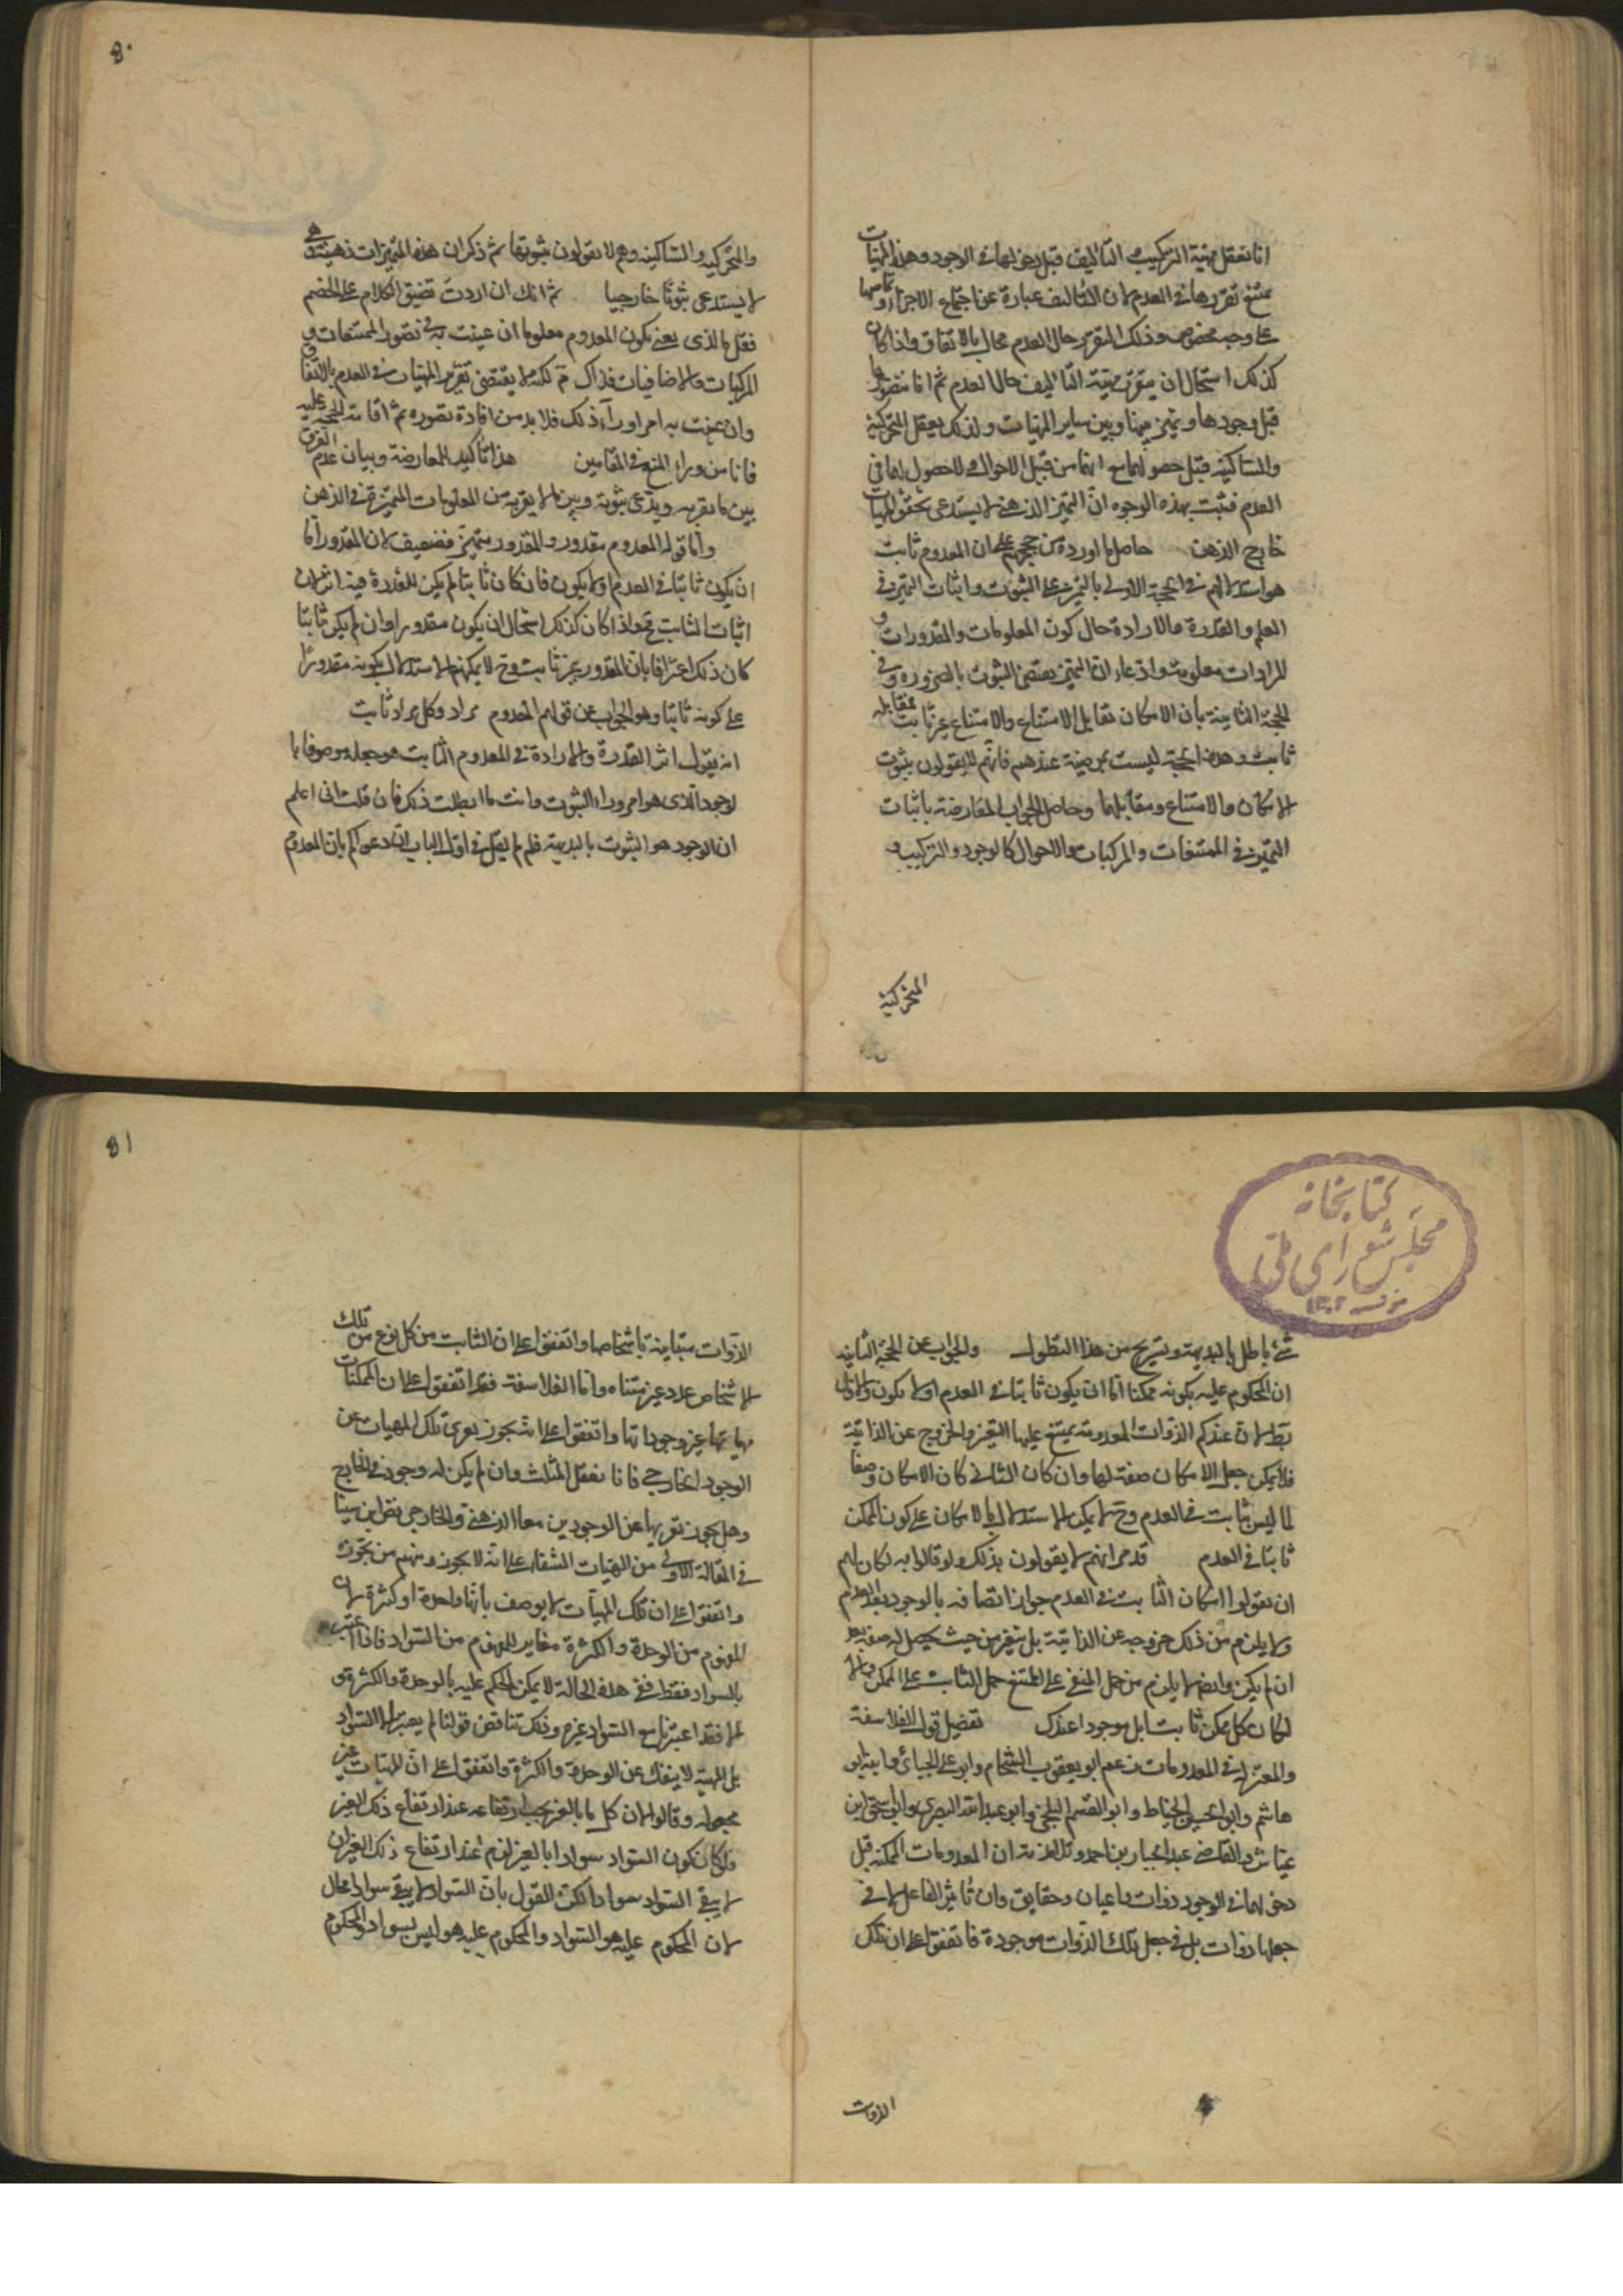 انا نعقل مهية التركيب و التاليف قبل دخولها فى الوجود وهذه المهيات
يمتنع تقررها فى العدم لان التاليف عبارة عن اجتماع الاجزاء وتماسها
على وجه مخصوص وذلك التقرر حال العدم محال بالاتفاق واذا كان
كذلك استحال ان يتقرر مهية التاليف حال العدم ثم انا نتصورها
قبل وجودها ونميز بينها وبين ساير المهيات ولذلك يعقل المتحركية
والساكنية قبل حصولهما مع انهما من قبيل الاحوال ولا حصول لها فى
العدم فثبت بهذه الوجوه انّ التميز الذهنى لا يستدعى تحقق المهيات
خارج الذهن حاصل ما اورده من حججهم على ان المعدوم ثابت
هو استدلالهم فى الحجة الاولى بالتميز على الثبوت واثبات التميز فى
العلم والقدرة والارادة حال كون المعلومات والمقدورات و
المرادات معلومة وادعاء ان التميز يقتضى الثبوت بالضرورة وفى
الحجة الثانية بان الامكان تقابل الامتناع والامتناع غير ثابت فمقابله
ثابت وهذه الحجة ليست مرضية عندهم فانّهم لا يقولون بثبوت
الامكان والامتناع ومقابلهما وحاصل الجواب المعارضة باثبات
التميز فى الممتنعات والمركبات والاحوال كالوجود والتركيب و
المتحركية
٥٠
والمتحركية والساكنية وهم لا يقولون بثبوتها ثم ذكر ان هذه التميزات ذهنية وهى
لا يستدعى ثبوتا خارجيا ثم انك ان اردت تضيق الكلام على الخصم
فقل ما الذى يعنى بكون المعدوم معلوما ان عينت به فى تصور الممتنعات و
المركبات والاضافيات فذاك مم لكنه لا يقتضى تقرر المهيات فى العدم بالاتفاق
وان عنيت به امرا وراء ذلك فلا بد من افادة تصوره ثم اقامة الحجة عليه
فانا من وراء المنع فى المقامين هذا تاكيد للمعارضة وبيان عدم الفرق
بين ما يقر به ويدعى ثبوته وبين ما لا يقر به من المعلومات المتميزة فى الذهن
وامّا قوله المعدوم مقدور والمقدور متميز فضعيف لان المقدور اما
ان يكون ثابتا فى العدم او لا يكون فان كان ثابتا لم يكن للقدرة فيه اثر لان
اثبات الثابت مح واذا كان كذلك استحال ان يكون مقدورا وان لم يكن ثابتا
كان ذلك اعترافا بان المقدور غير ثابت وح لا يمكنهم الاستدلال بكونه مقدورا
على كونه ثابتا وهو الجواب عن قولهم المعدوم مراد وكل مراد ثابت
انه يقول اثر القدرة والارادة فى المعدوم الثابت هو جعله موصوفا بالـ
لوجود الذى هو امر وراء الثبوت وانت ما ابطلت ذلك فان قلت انى اعلم
ان الوجود هو الثبوت بالبديهة فلم لم يقل فى اول الباب ان دعواكم بان المعدوم
كتابخانه
مجلس شوراى ملى
١٣٠٢
شئ باطل بالبديهة ويستريح من هذا التطول والجواب عن الحجة الثانية
ان المحكوم عليه بكونه ممكنا اما ان يكون ثابتا فى العدم او لا يكون والاول
بط لان عندكم الذوات المعدومة يمتنع عليها التغير والخروج عن الذاتية
فلا يمكن جعل الامكان صفة لها وان كان الثانى كان الامكان وصفا
لما ليس بثابت فى العدم وح لا يمكن الاستدلال بالامكان على كون الممكن
ثابتا فى العدم قد مر انهم لا يقولون بذلك ولو قالوا به لكان لهم
ان يقولوا امكان الثابت فى العدم جواز اتصافه بالوجود بعد العدم
ولا يلزم من ذلك خروجه عن الذاتية بل تغير من حيث يحصل له صفة بعد
ان لم يكن وايض لا يلزم من حمل المنفى على الممتنع حمل الثابت على الممكن والا
لكان كل ممكن ثابتا بل موجودا عندك تفصيل قول الفلاسفة
والمعتزلة فى المعدومات زعم ابو يعقوب الشحام وابو على الجبائى وابنه ابو
هاشم وابو الحسين الخياط وابو القسم البلخى وابو عبد الله البصرى وابو اسحق ابن
عياش والقاضى عبد الجبار بن احمد وتلامذته ان المعدومات الممكنة قبل
دخولها فى الوجود ذوات واعيان وحقايق وان تاثير الفاعل لا فى
جعلها ذوات بل فى جعل تلك الذوات موجودة فاتفقوا على ان تلك
الذوات
٥١
الذوات متباينة باشخاصها واتفقوا على ان الثابت من كل نوع من تلك
الاشخاص عدد غير متناه واما الفلاسفة فقد اتفقوا على ان الممكنات
مهياتها غير وجوداتها واتفقوا على انه يجوز تعرى تلك المهيات عن
الوجود الخارجى فانا نعقل المثلث وان لم يكن له وجود فى الخارج
وهل يجوز تعريها عن الوجودين معا الذهنى والخارجى نص ابن سينا
فى المقالة الاولى من الهيات الشفاء على انه لا يجوز ومنهم من يجوزه
واتفقوا على ان تلك المهيات لا يوصف بانها واحدة او كثيرة لان
المفهوم من الوحدة والكثرة مغاير للمفهوم من السواد فاذا اعتبرنا
بالسواد فقط ففى هذه الحالة لا يمكن الحكم عليه بالوحدة والكثرة و
الا فقد اعتبرنا مع السواد غيره وذلك تناقض قولنا لم يعتبر الا السواد
بل المهية لا ينفك عن الوحدة والكثرة واتفقوا على انّ المهيات غير
مجعولة وقالوا لان كل ما بالغير يجب ارتفاعه عند ارتفاع ذلك الغير
فلو كان كون السواد سوادا بالغير لزم عند ارتفاع ذلك الغير ان
لا يبقى السواد سوادا لكن القول بان السواد لا يبقى سوادا محال
لان المحكوم عليه هو السواد والمحكوم عليه هو ليس بسواد والمحكوم